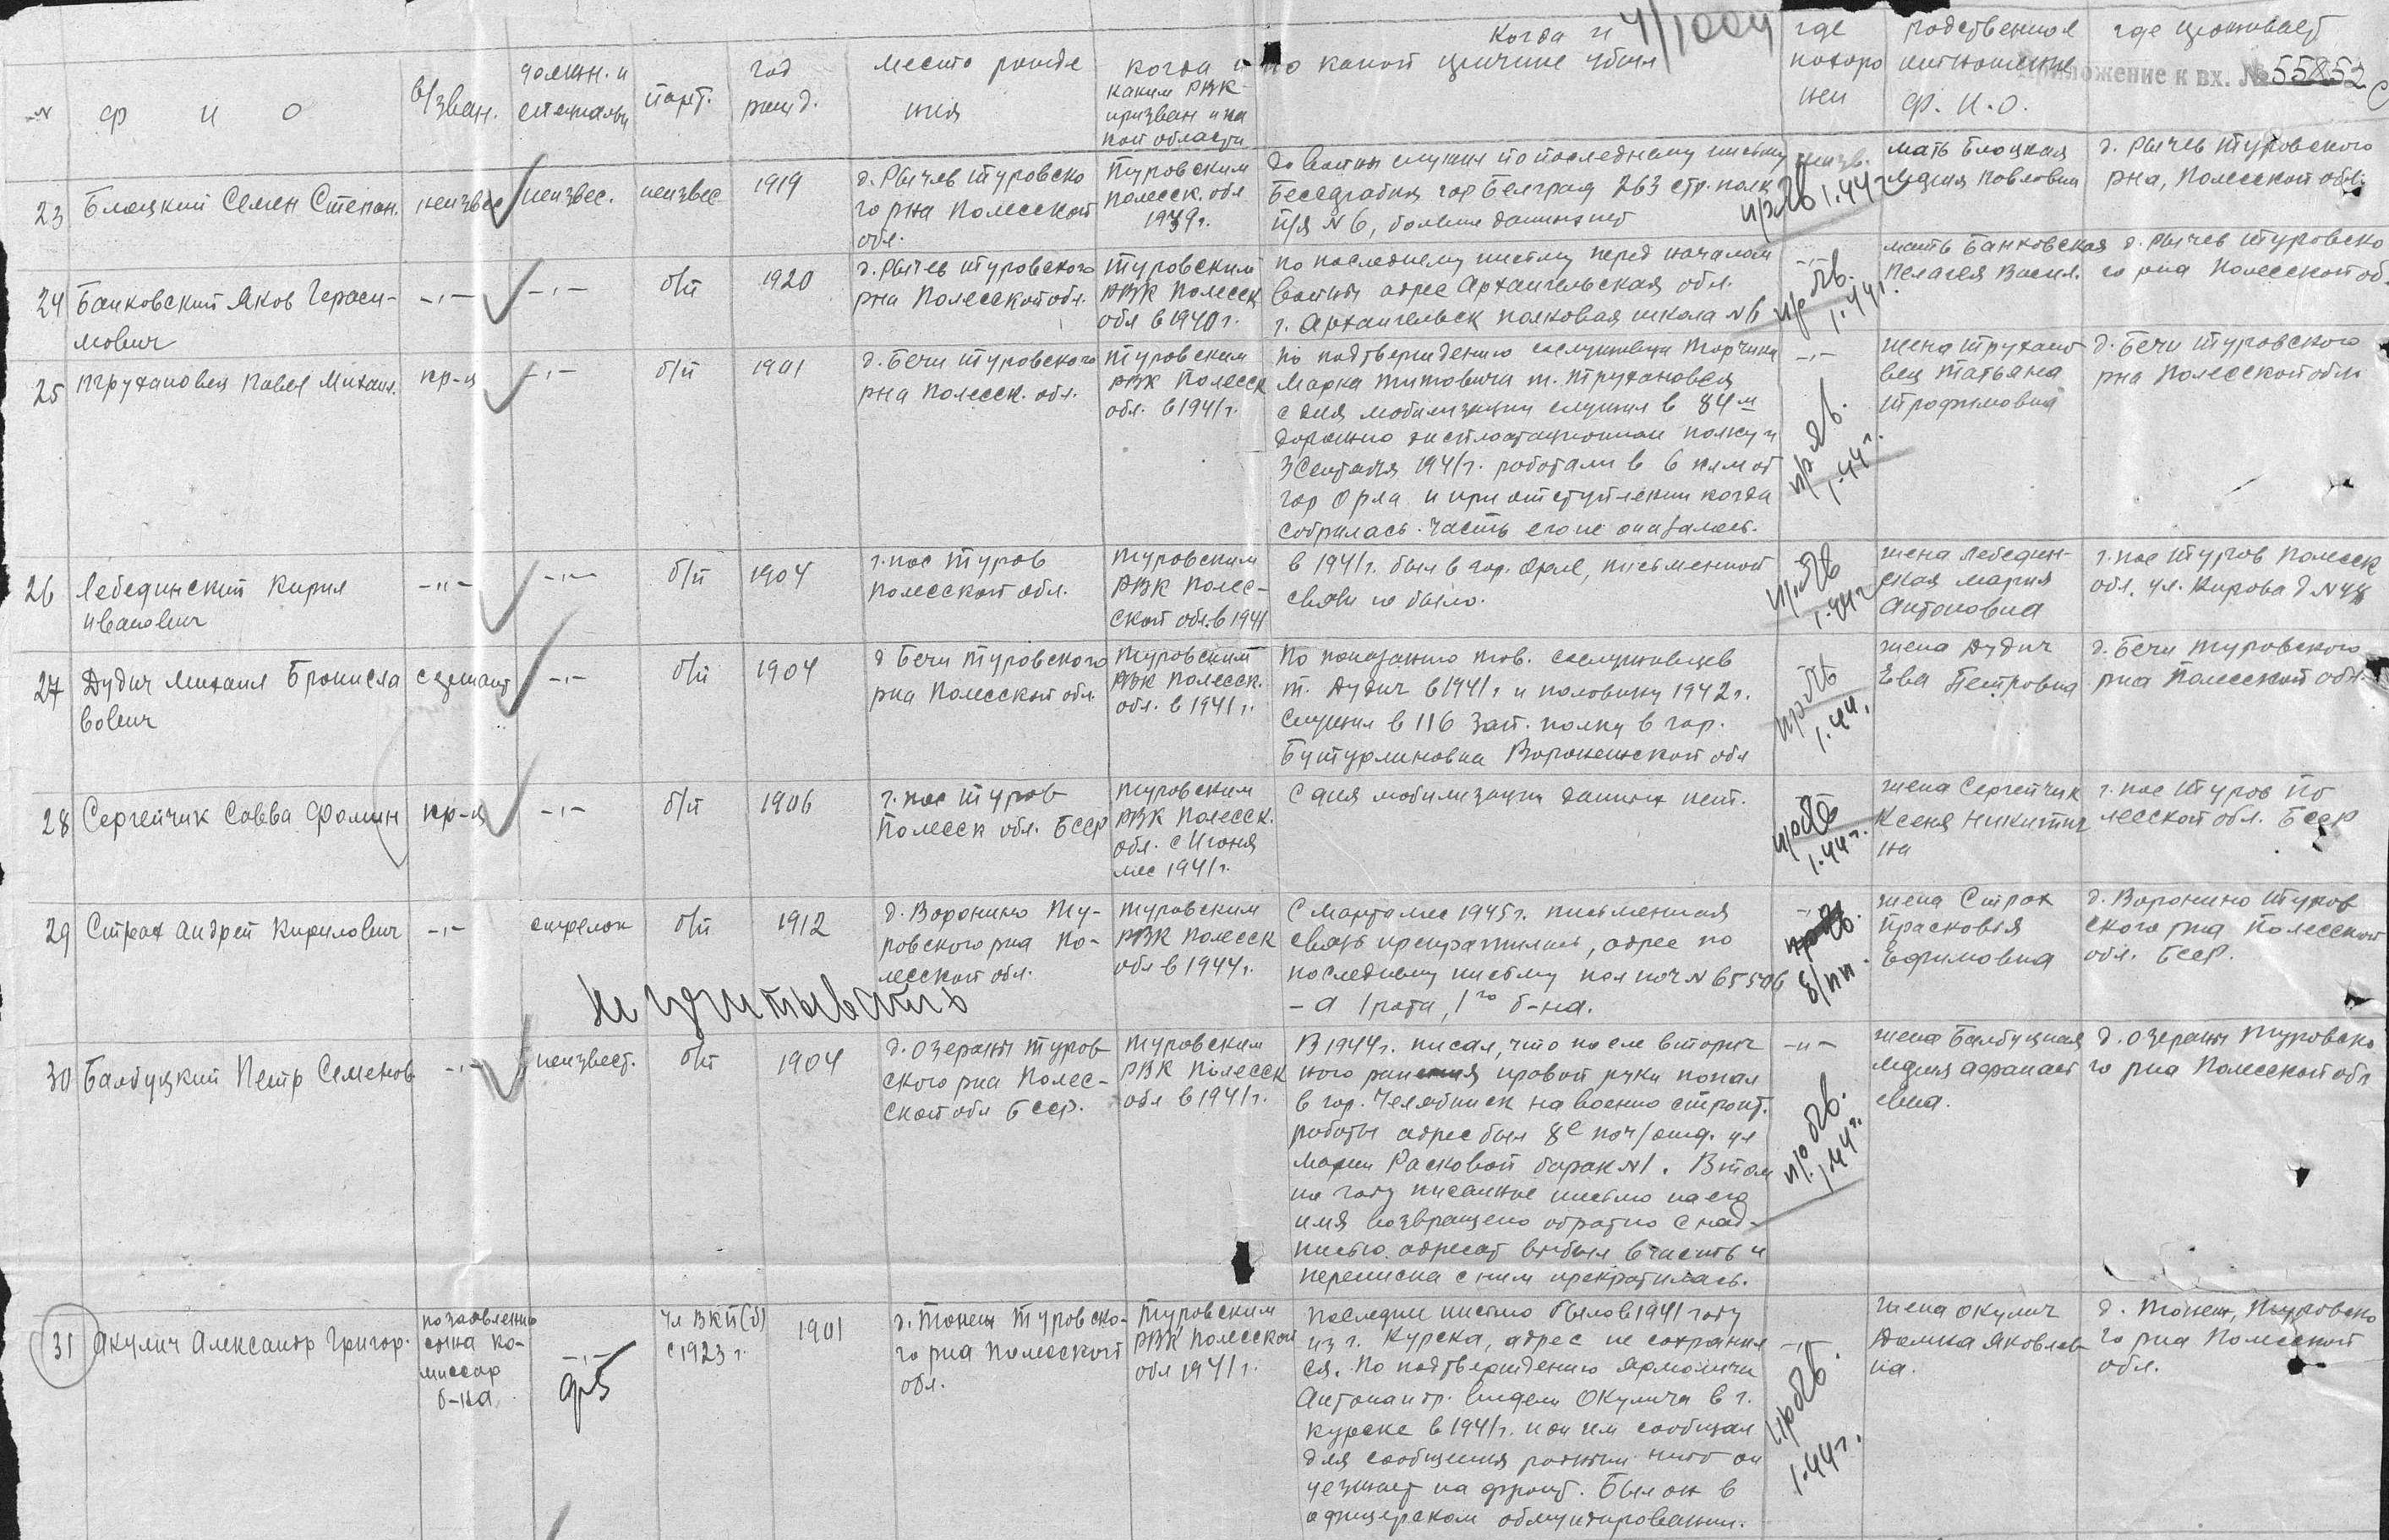 Когда и 4/1004 где родственное где проживает
Приложение к вх. № 55852 с
N Ф И О в/зван. должн. и специальн парт. год рожд. место рожде ния когда и каким РВК призван и ка кой области по какой причине убыл похоро нен отношение Ф. И. О.
23 Блоцкий Семен Степан. неизвес неизвес. неизвес 1919
д. Рычев Туровско
го р-на Полесской
обл.
Туровским
Полесск. обл
1939г.
до войны служил по последнему письму
Бессарабия гор Белград 263 стр. полк
п/я N 6, больше данных нет
неизв.
пр. б/в 1.44 г
мать Блоцкая
Павловна
д. Рычев Туровского
р-на, Полесской обл.
24 Банковский Яков Гераси-
мович
-"- -"- б/п 1920
д. Рычев Туровского
р-на Полесской обл.
Туровским
РВК Полесск
обл в 1940 г.
по последнему письму перед началом
войны адрес Архангельская обл.
г. Архангельск полковая школа N 6
-"-
п/р б/в.
1.44г.
мать Банковская
Пелагея Васил.
д. Рычев Туровско
го р-на Полесской об.
25 Трухановец Павел Михаил. кр-ц -"- б/п 1901
д. Бечи Туровского
р-на Полесск. обл.
Туровским
РВК Полесск
обл. в 1941 г.
по подтверждению сослуживца Торчика
Марка Титовича т. Трухановец
с дня мобилизации служил в 84 м
дорожно эксплоатационном полку и
3 Сентября 1941 г. работали в 6 клм от
гор Орла и при отступлении когда
собралась часть его не оказалось.
-"-
п/р б/в.
1.44г.
жена Труханов
вец Татьяна
Трофимовна
д. Бечи Туровского
р-на Полесской обл
26 Лебединский Кирил
Иванович
-"- -"- б/п 1904
г. пос Туров
Полесской обл.
Туровским
РВК Полес-
ской обл. в 1941
в 1941 г. был в гор. Орле, письменной
связи не было.
пр. б/в
1.44г
жена Лебедин-
ская Мария
Антоновна
г. пос Туров Полесск
обл. ул. Кирова д N 48
27 Дудич Михаил Бронисла
вович
сержант -"- б/п 1904
д Бечи Туровского
р-на Полесской обл
Туровским
РВК Полесск.
обл. в 1941 г.
По показанию тов. сослуживцев
т. Дудич в 1941 г и половину 1942 г.
служил в 116 зап. полку в гор.
Бутурлиновка Воронежской обл
пр б/в
1.44.
жена Дудич
Ева Петровна
д. Бечи Туровского
р-на Полесской обл.
28 Сергейчик Савва Фомин кр-ц -"- б/п 1906
г. пос Туров
Полесск обл. БССР
Туровским
РВК Полесск.
обл. с Июня
мес 1941 г.
С дня мобилизации данных нет.
пр б/в
1.44г.
жена Сергейчик
Ксеня Никитич
на
г. пос Туров По
лесской обл. БССР
29 Страх Андрей Кирилович -"- стрелок б/п 1912
д. Воронино Ту-
ровского р-на По-
лесской обл.
Туровским
РВК Полесск
обл в 1944 г.
С марта мес 1945 г. письменная
связь прекратилась, адрес по
последнему письму пол поч N 65506
- а 1 рота, 1го б-на.
-"-
жена Страх
Прасковья
Ефимовна
д. Воронино Туров
ского р-на Полесской
обл. БССР.
не учитывать
30 Балбуцкий Петр Семенов -"- неизвест. б/п 1904
д. Озераны Туров
ского р-на Полес-
ской обл БССР.
Туровским
РВК Полесск
обл в 1941 г.
В 1944 г. писал, что после вторич
ного ранения правой руки попал
в гор. Челябинск на военно строит.
работы адрес был 8е поч/отд. ул
Марии Расковой барак N 1. В том
же году писанное письмо на его
имя возвращено обратно с над-
писью адресат выбыл в часть и
переписка с ним прекратилась.
-"-
п/р б/в.
1.44г.
жена Балбуцкая
Афанась
евна.
д. Озераны Туровско
го р-на Полесской обл
31 Акулич Александр Григор.
по заявлению
сына ко-
миссар
б-на
-"-
чл ВКП(б)
с 1923 г.
1901
д. Тонеж Туровско-
го р-на Полесской
обл.
Туровским
РВК Полесской
обл 1941 г.
последнее письмо было в 1941 году
из г. Курска, адрес не сохранил
ся. По подтверждению Ярмолича
видели Окулича в г.
Курске в 1941 г. и он им сообщал
для сообщения родным что он
уезжает на фронт. Был он в
офицерском обмундировании.
-"-
пр б/в.
1.44г.
жена Окулич
Домна Яковлев
на.
д. Тонеж, Туровско
го р-на Полесской
обл.